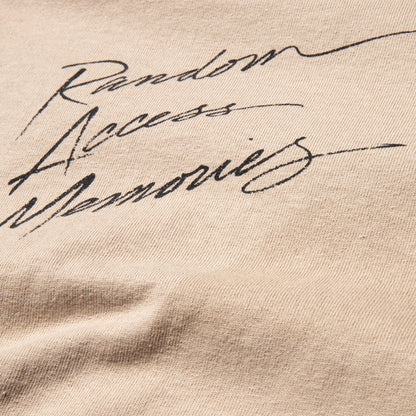 Random
Access
Memories